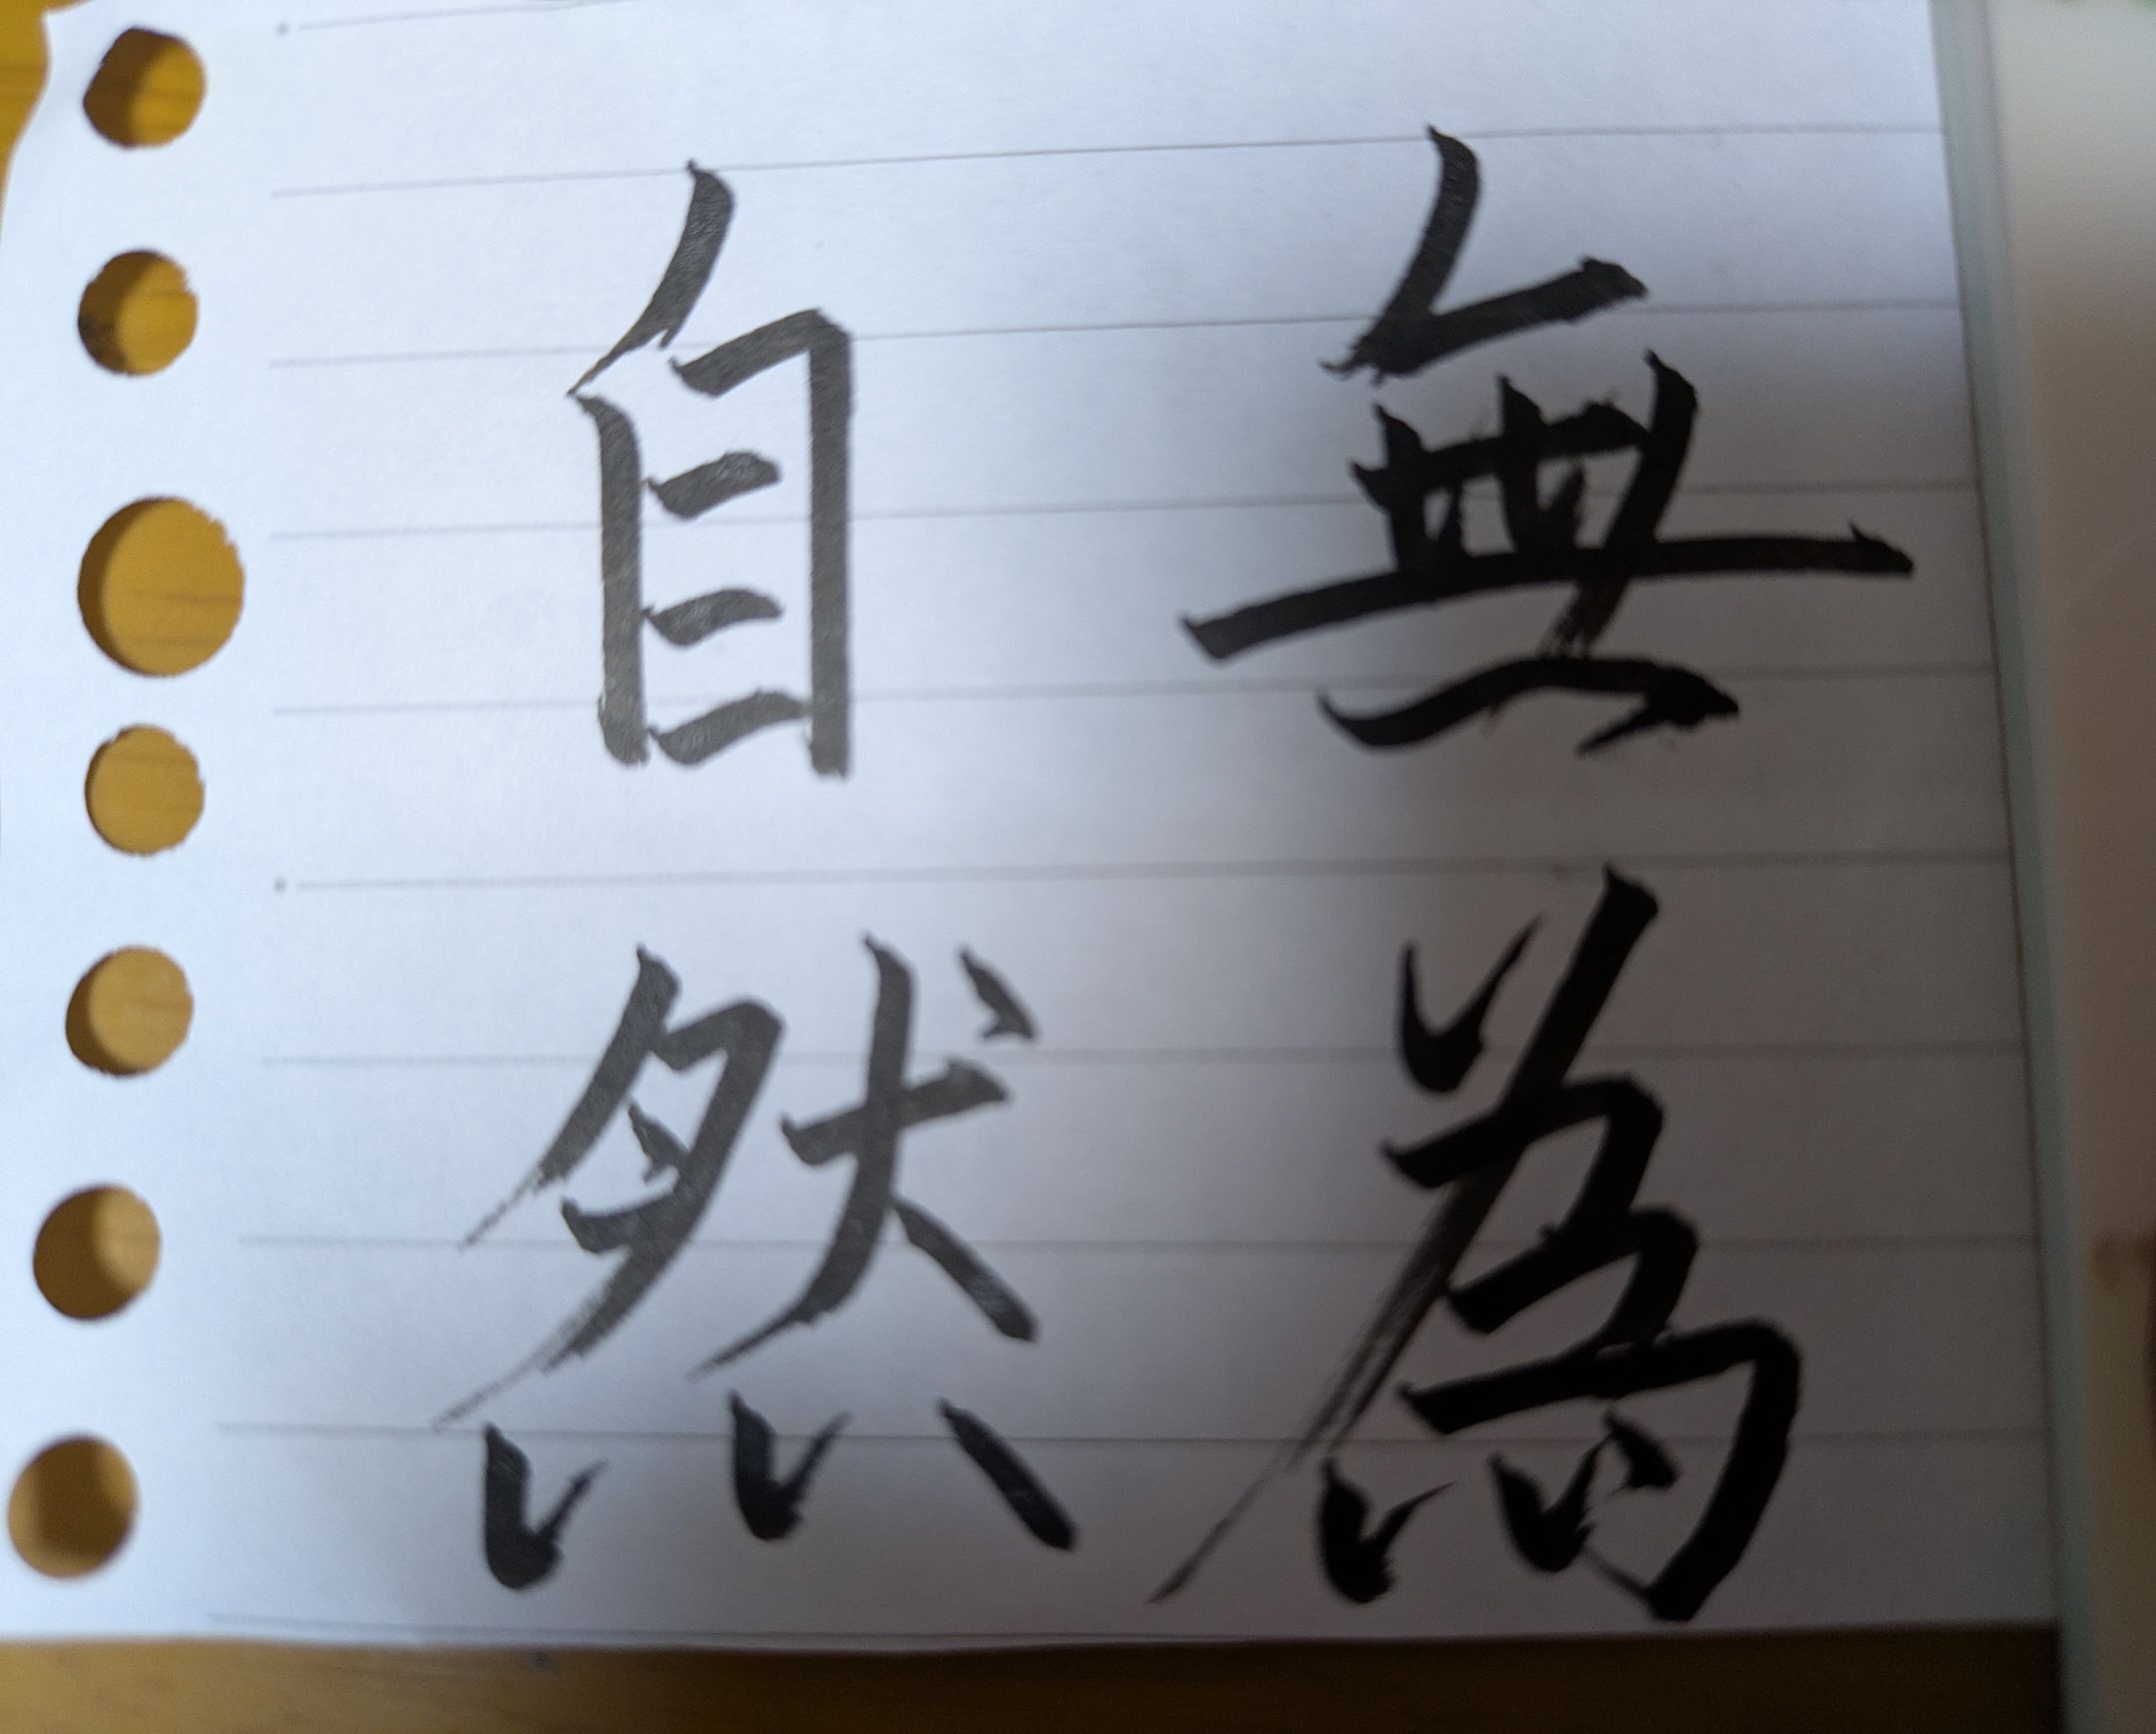 無為
自然